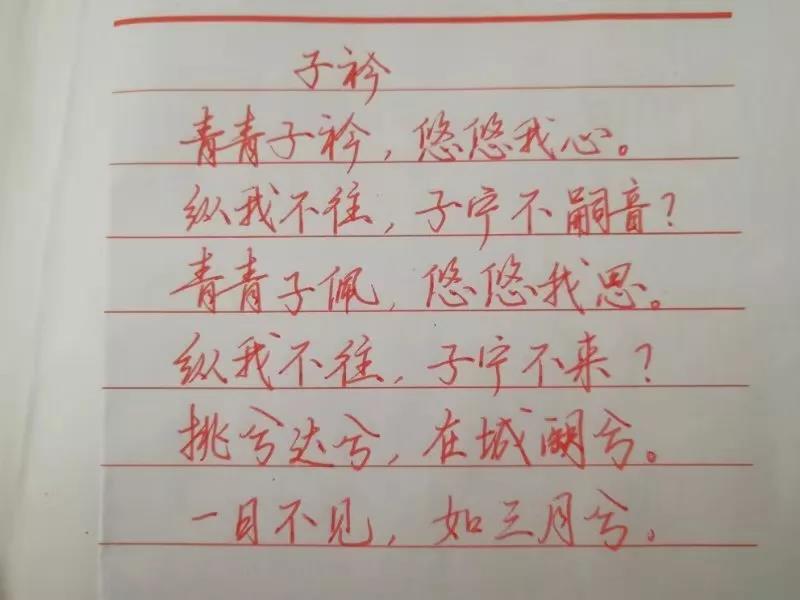 子衿
青青子衿，悠悠我心。
纵我不往，子宁不嗣音？
青青子佩，悠悠我思。
纵我不往，子宁不来？
挑兮达兮，在城阙兮。
一日不见，如三月兮。